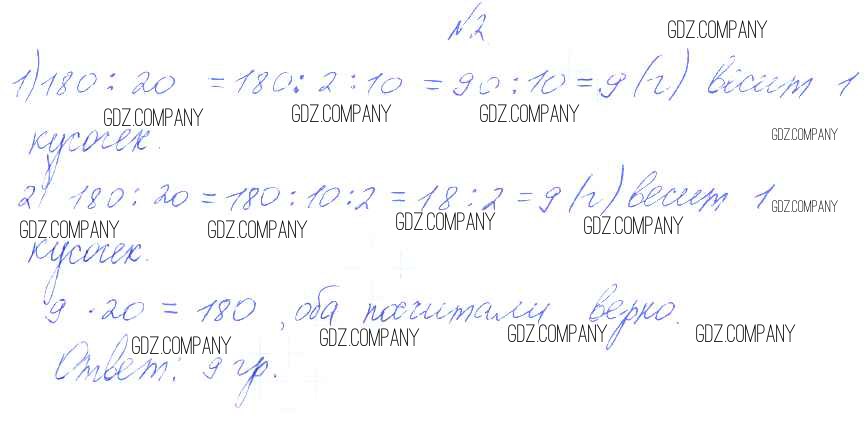 №2 GDZ.COMPANY
1) 180 : 20 = 180 : 2 : 10 = 90 : 10 = 9 (г) весит 1
GDZ.COMPANY GDZ.COMPANY GDZ.COMPANY GDZ.COMPANY
кусочек.
2) 180 : 20 = 180 : 10 : 2 = 18 : 2 = 9 (г) весит 1 GDZ.COMPANY
GDZ.COMPANY GDZ.COMPANY GDZ.COMPANY GDZ.COMPANY
кусочек.
9 · 20 = 180, оба посчитали верно.
GDZ.COMPANY GDZ.COMPANY GDZ.COMPANY GDZ.COMPANY
Ответ: 9 гр.